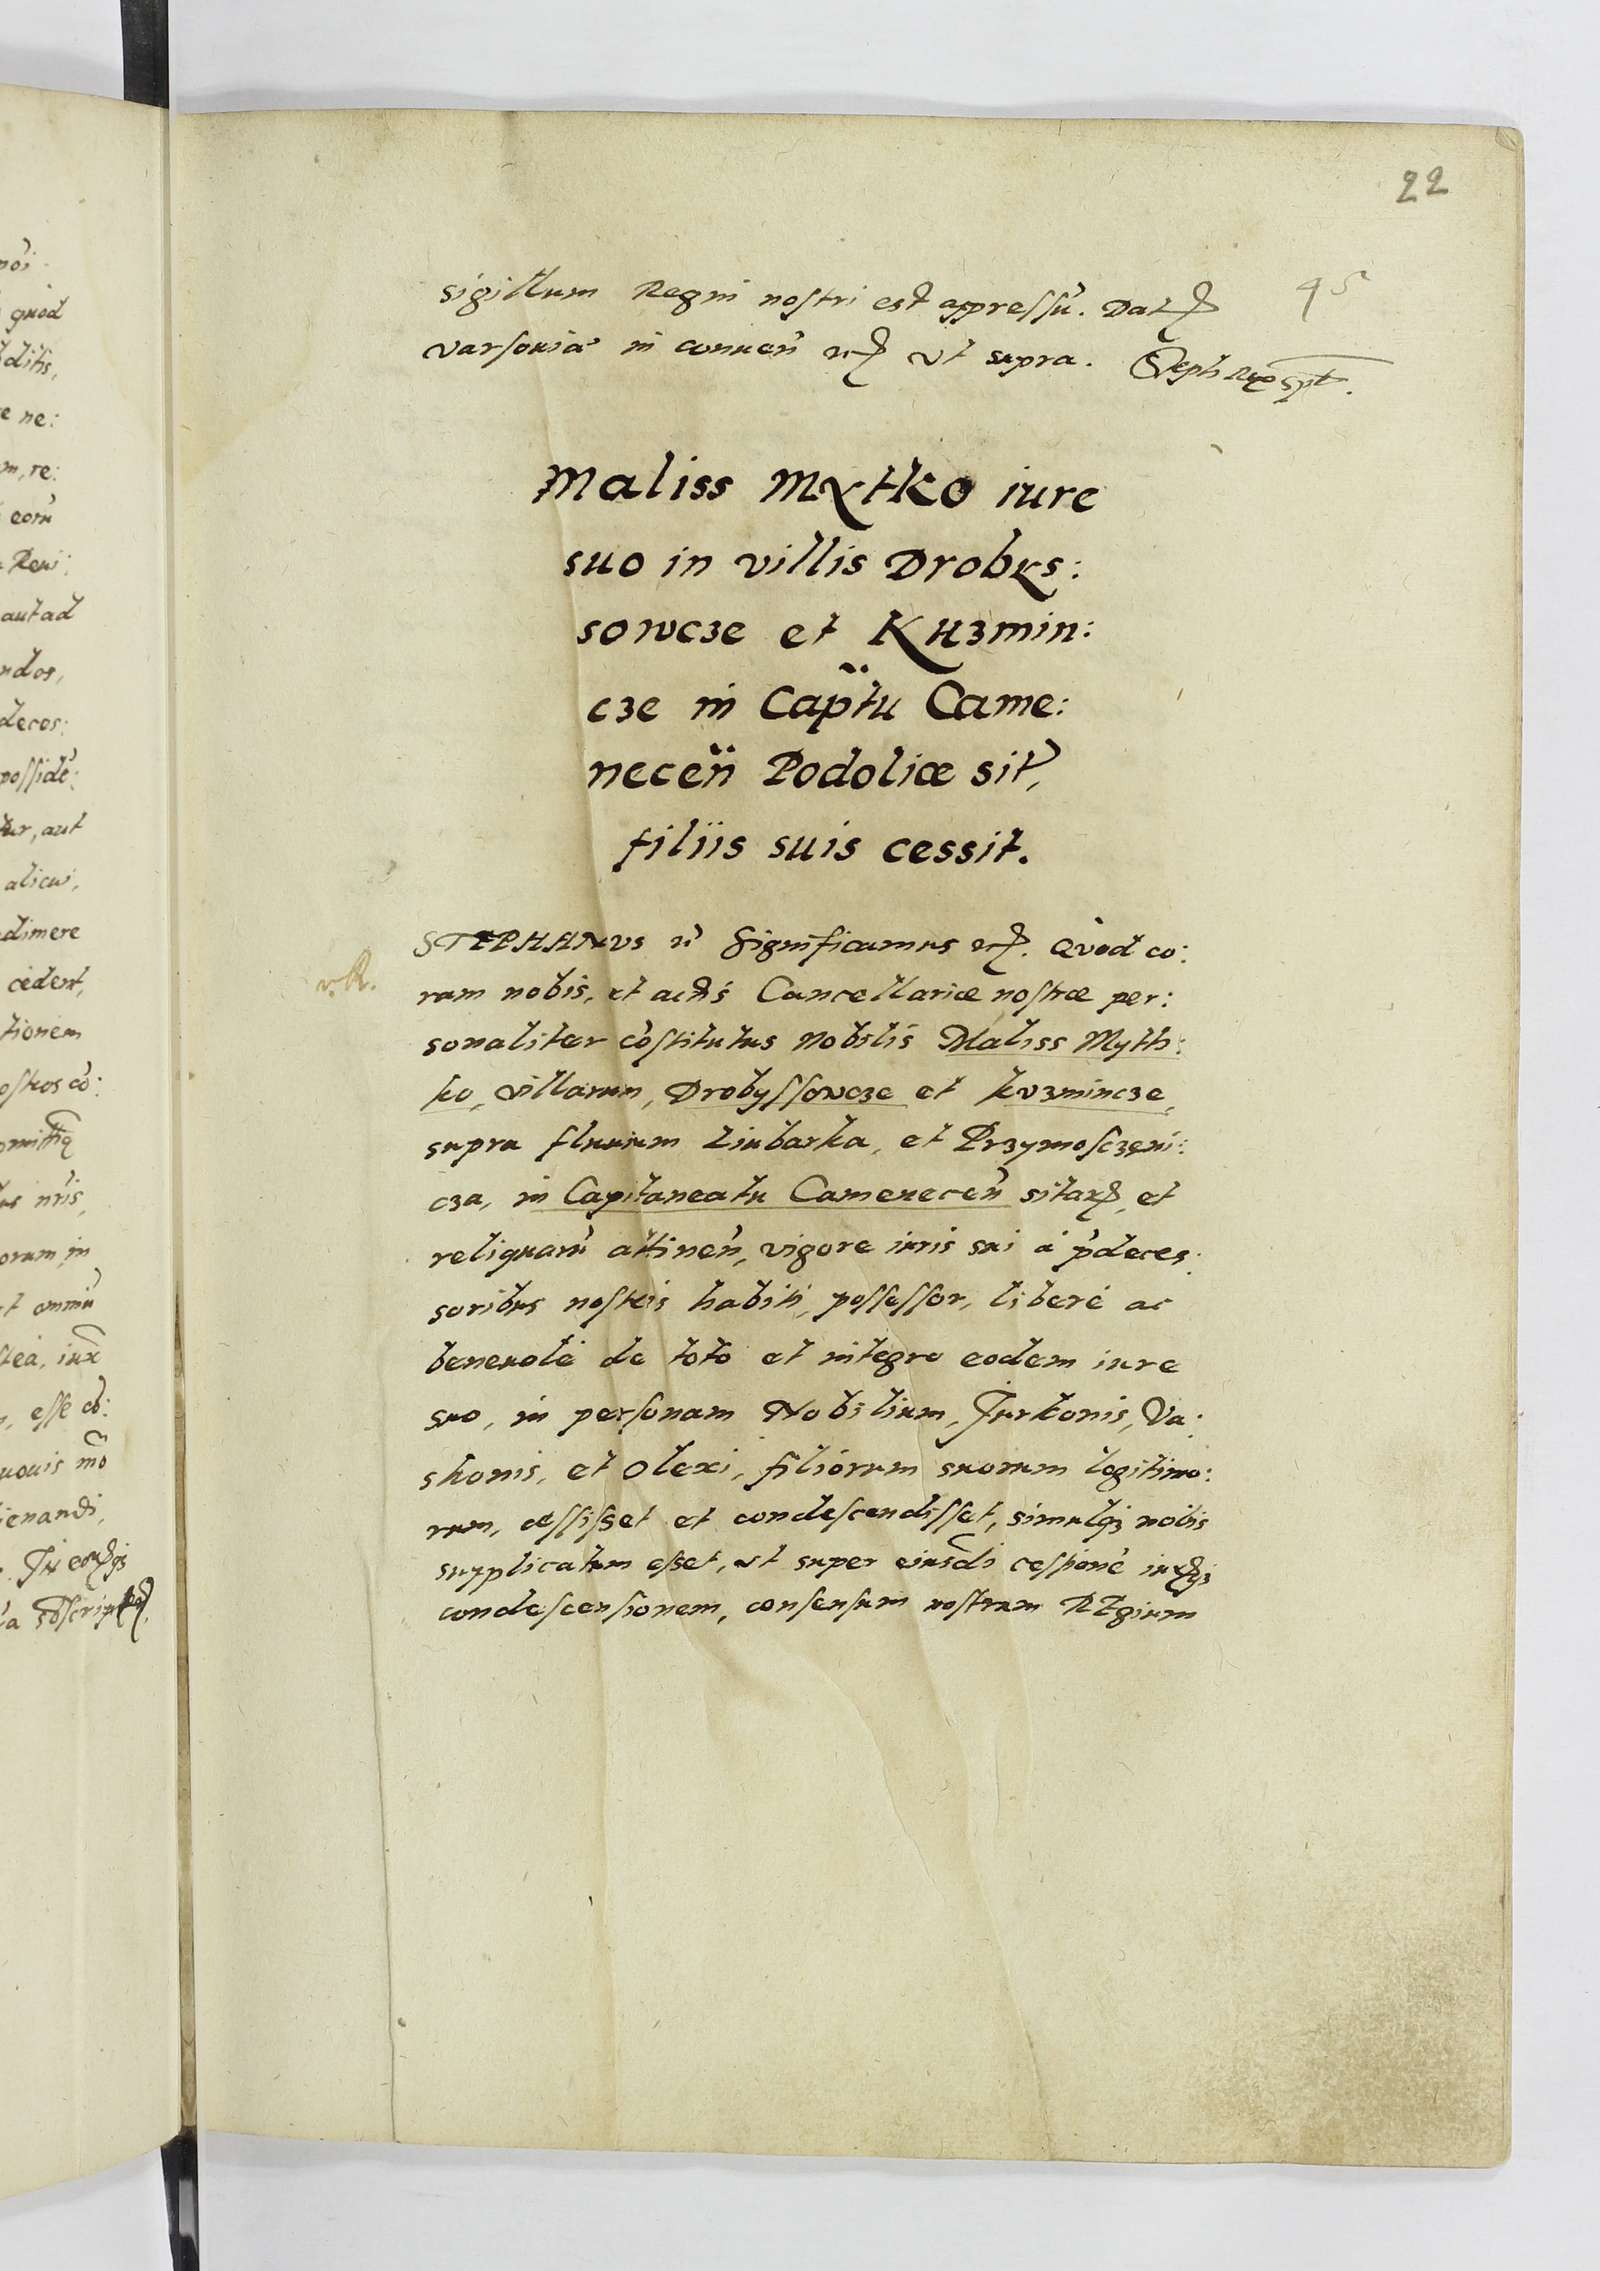 22
45
sigillum Regni nostri est appressũ. Dat
varsouiæ in conuen̄ ut supra. Steph Rex spt.
Maliss Mytko iure
suo in villis Drobys:
sowcze et Kuzmin:
cze in Cap̈tu Came:
necen̈ Podoliæ sit,
filiis suis cessit.
STEPHANVS Significamus Quod co:
v. R.
ram nobis, et actis Cancellariæ nostræ per:
sonaliter cõstitutus Nobilis Maliss Myth:
ko, villarum, Drobyssowcze et kuzmincze,
supra fluuium Liubarka, et Przymosczeni:
cza, in Capitaneatu Camenecen̄ sitar, et
reliquarũ attinen̄, vigore iuris sui à p̃deces:
soribus nostris habiti, possessor, liberè ac
beneuolè de toto et integro eodem iure
suo, in personam Nobilium, Jurkonis, Va:
skonis, et Olexi, filiorum suorum legitimo:
rum, cessisset et condescendisset, simulq3 nobis
supplicatum esset, ut super eiusdi cessionẽ
condescensionem, consensum nostrum REgium